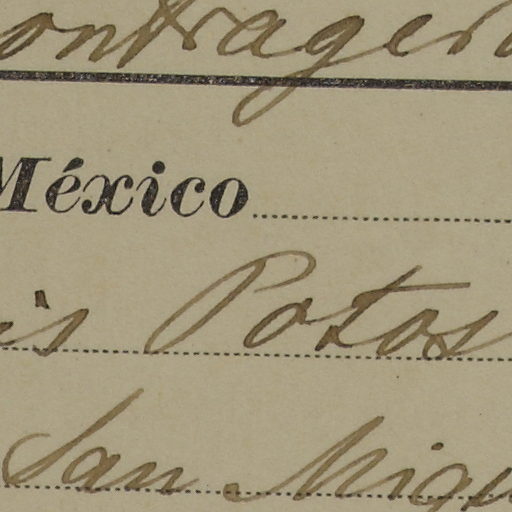 ontrager
México
is Potos
San Migu